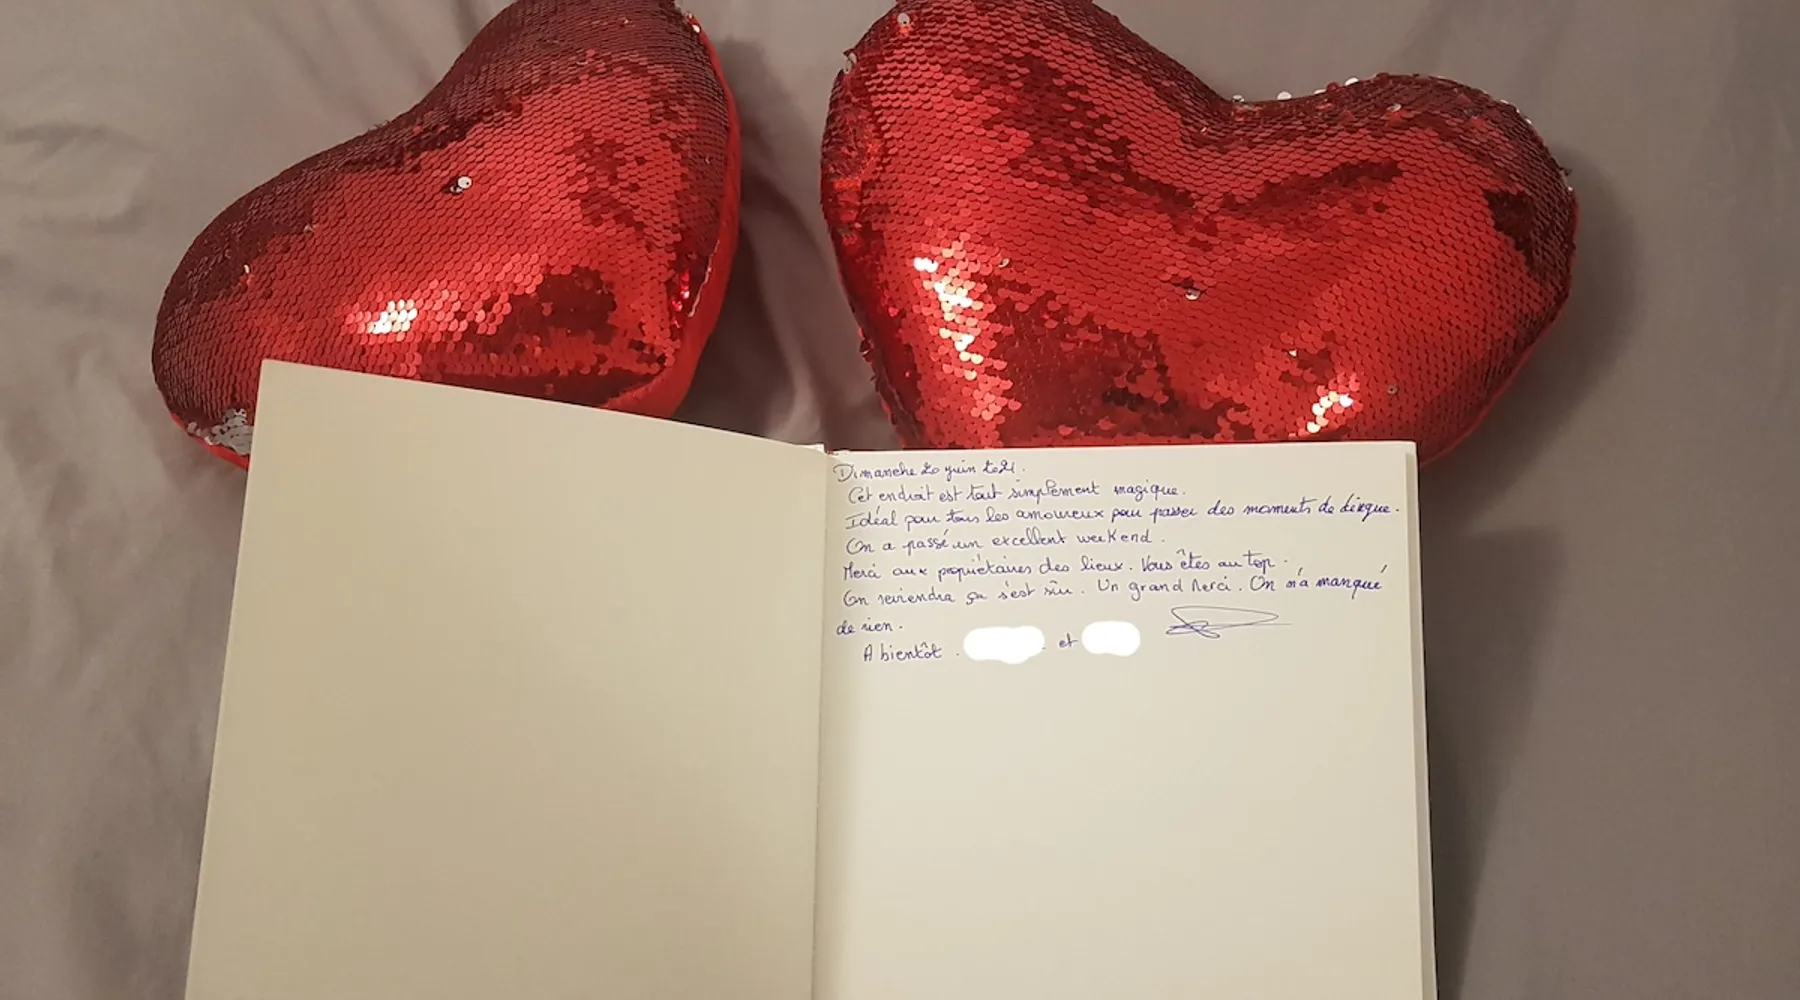 Dimanche 20 juin 2021.
Cet endroit est tout simplement magique.
Idéal pour tous les amoureux pour passer des moments de dingue.
On a passé un excellent weekend.
Merci aux propriétaires des lieux. Vous êtes au top.
On reviendra ça s'est sûr. Un grand Merci. On n'a manqué
de rien.
A bientôt. et